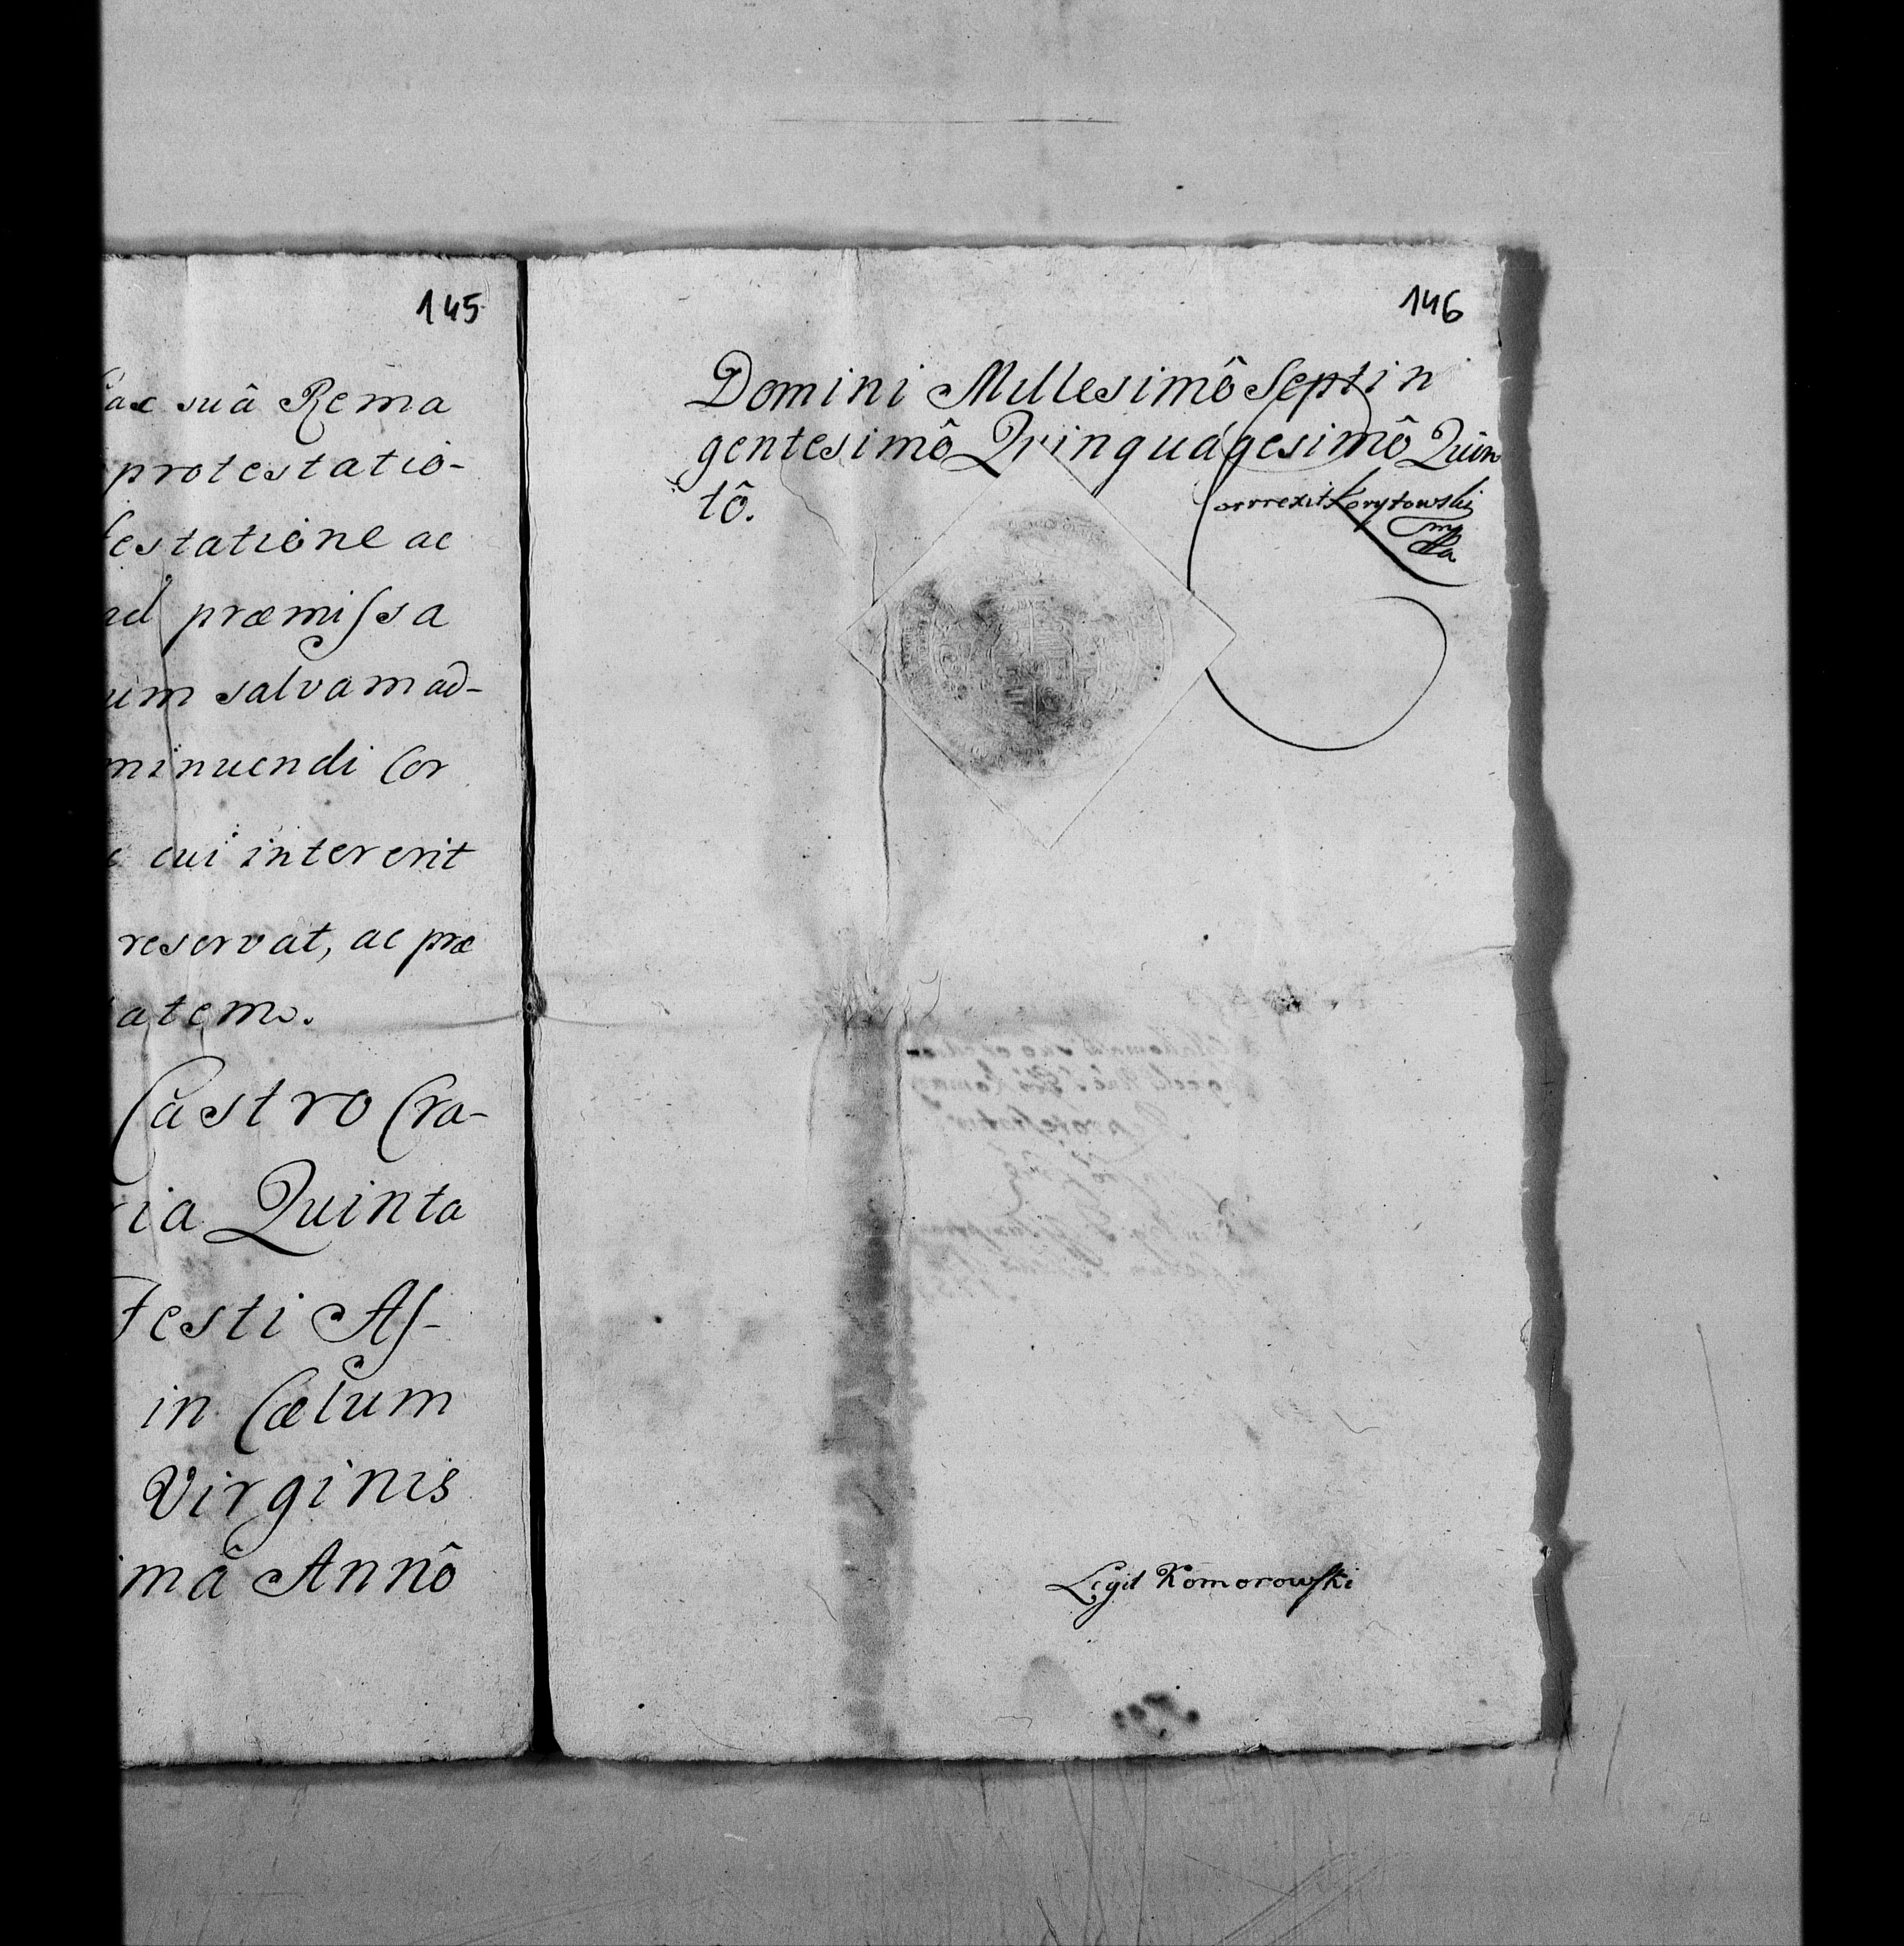 145
suâ Rema
protestatio-
testatione ac
ad præmissa
um salvam ad-
minuendi Cor
cui intererit
reservat, ac præ
atem.
Castro Cra-
ria Quinta
Festi As-
in Cælum
Virginis
ma Annô
146
Domini Millesimô Septin
gentesimô Quinquagesimô Quin
tô.
Correxit Korytowski
mppa
Legit Komorowski